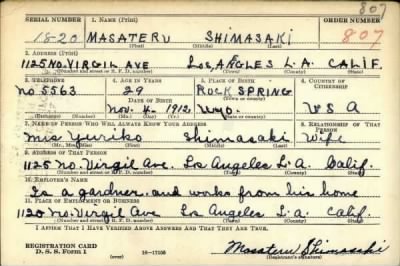 807
SERIAL NUMBER 1. NAME (Print) ORDER NUMBER
1820 MASATERU SHIMASAKI 807
(First) (Middle) (Last)
2. ADDRESS (Print)
1125 NO. VIRGIL AVE LOS, ANGLES L.A. CALIF.
(Number and street or R. F. D. number) (Town) (County) (State)
3. TELEPHONE 4. AGE IN YEARS 5. PLACE OF BIRTH 6. COUNTRY OF CITIZENSHIP
NO 5563 29 ROCK SPRING
DATE OF BIRTH (Town or county)
Nov. 4. 1912 Wyo. U S A
(Mo.) (Day) (Yr.) (State or country)
7. NAME OF PERSON WHO WILL ALWAYS KNOW YOUR ADDRESS 8. RELATIONSHIP OF THAT PERSON
Mis Yuriko Shimasaki Wife
(Mr., Mrs., Miss) (First) (Middle) (Last)
9. ADDRESS OF THAT PERSON
1125 no. Virgil Ave. Los Angeles L.A. Calif.
(Number and street or R. F. D. number) (Town) (County) (State)
10. EMPLOYER'S NAME
Is a gardner. and works from his home
11. PLACE OF EMPLOYMENT OR BUSINESS
1120 no. Virgil Ave Los Angeles L.a. Calif.
(Number and street or R. F. D. number) (Town) (County) (State)
I AFFIRM THAT I HAVE VERIFIED ABOVE ANSWERS AND THAT THEY ARE TRUE.
REGISTRATION CARD
D. S. S. Form 1 (over) 16-17105 Masateru Shimasaki
(Registrant's signature)